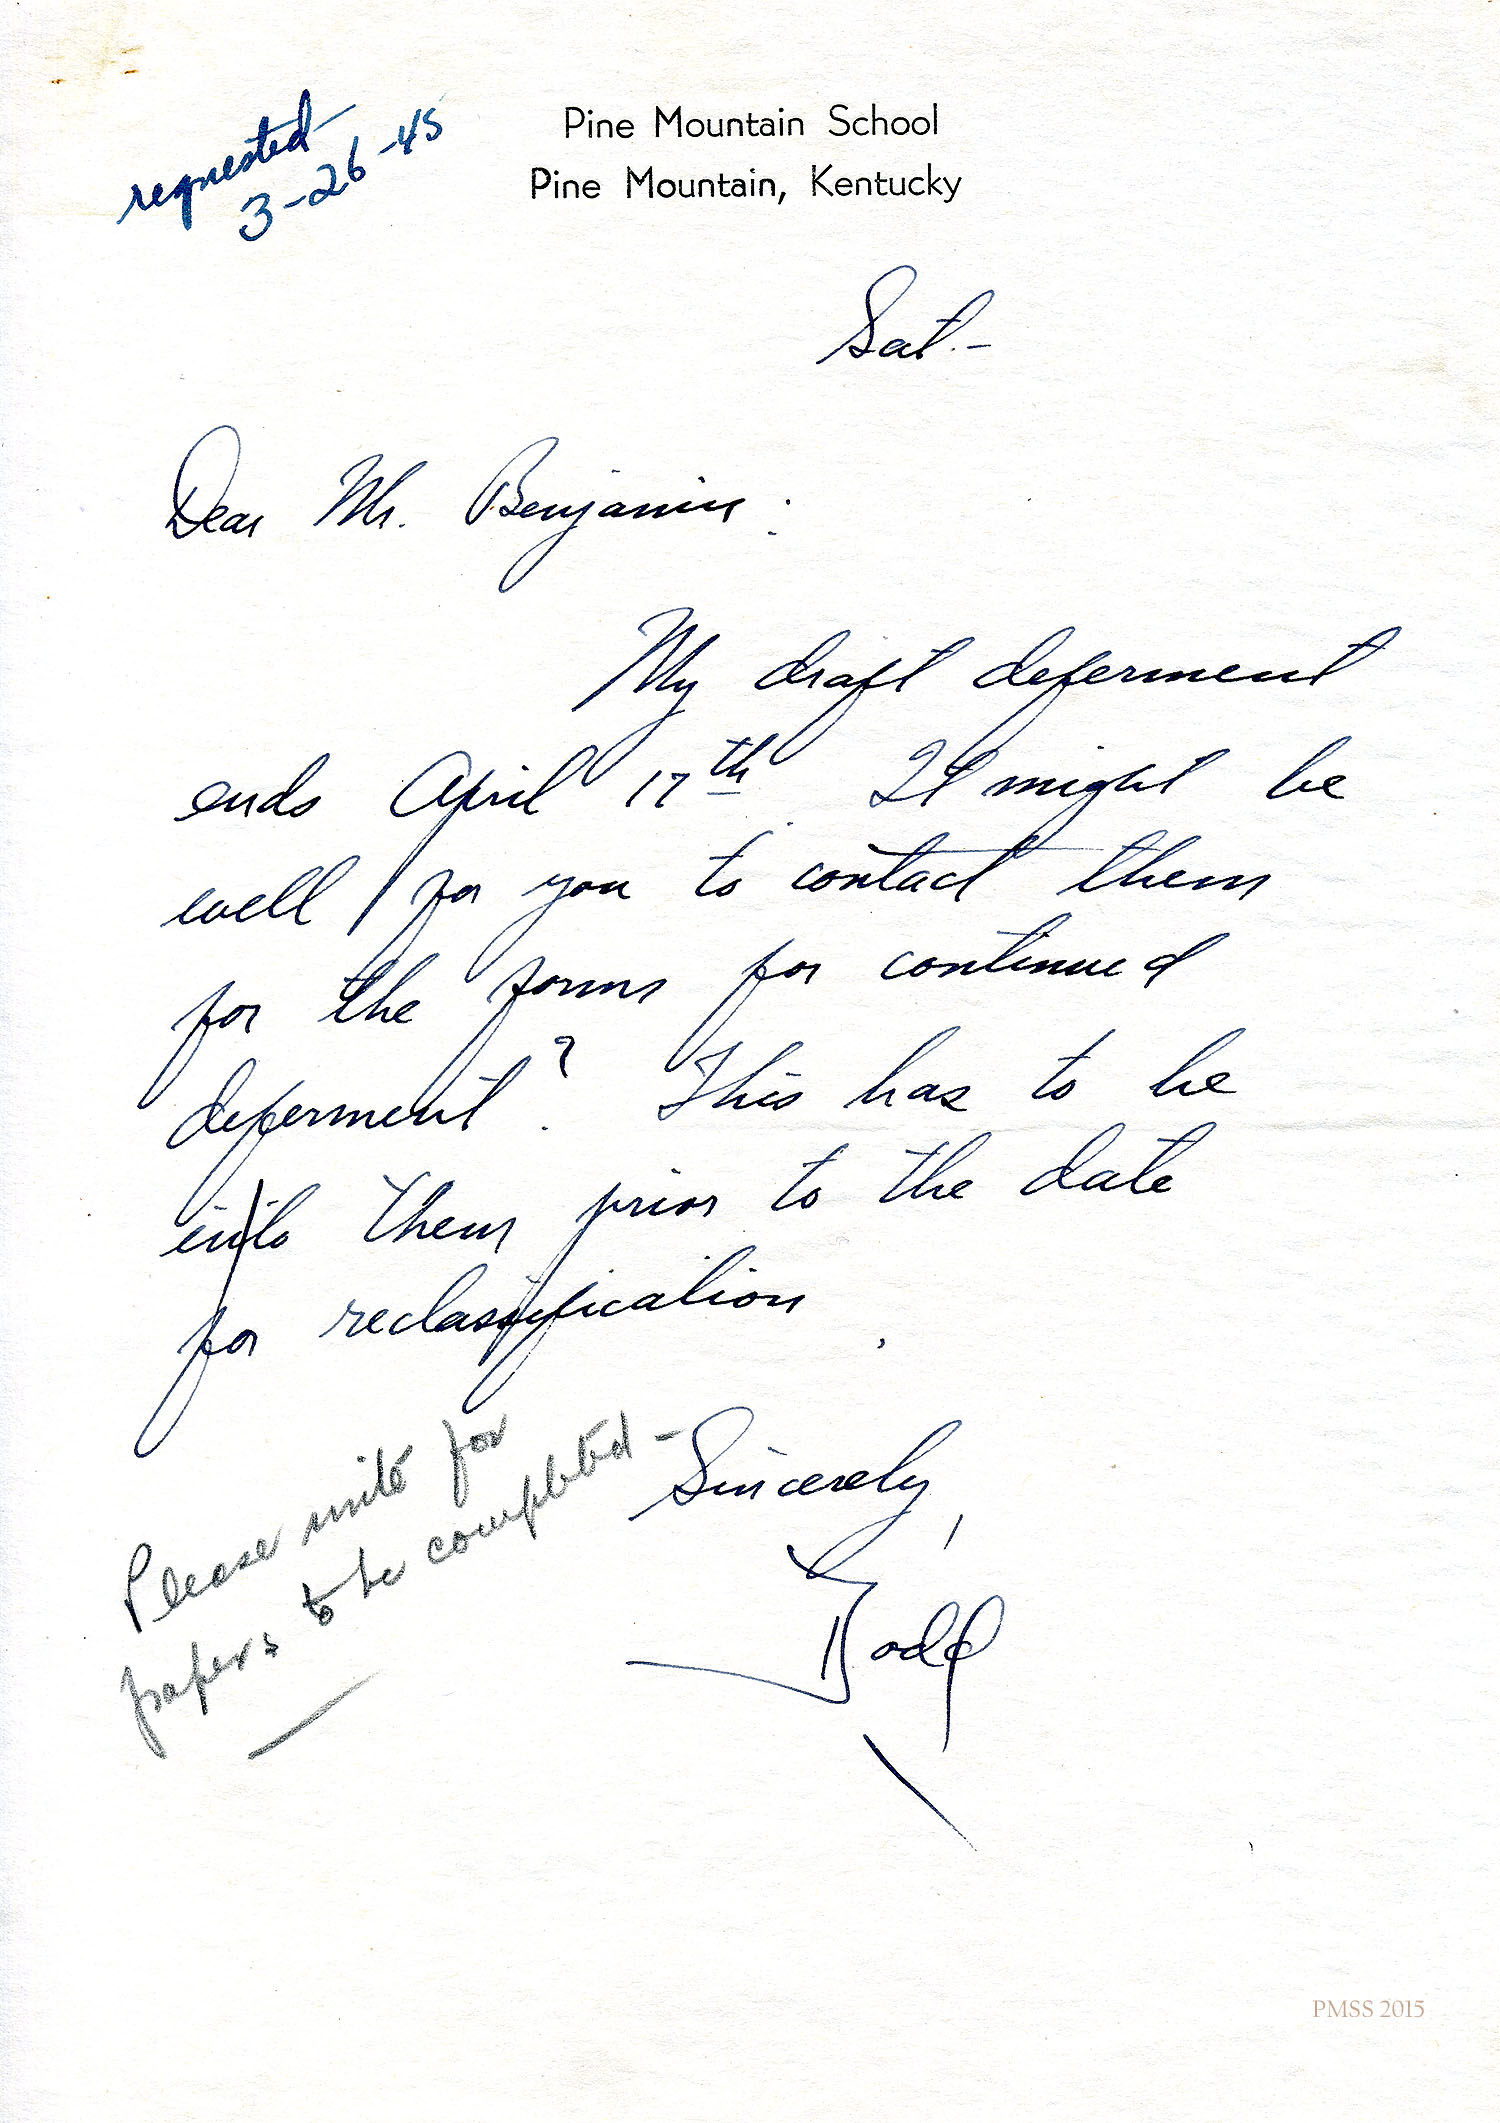 requested
3-26-45
Pine Mountain School
Pine Mountain, Kentucky
Sat.-
Dear Mr. Benjamin:
My draft deferment
ends April 17th. It might be
well for you to contact them
for the forms for continued
deferment? This has to be
in to them prior to the date
for reclassification.
Please write for
papers to be completed-
Sincerely,
Dodd
PMSS 2015